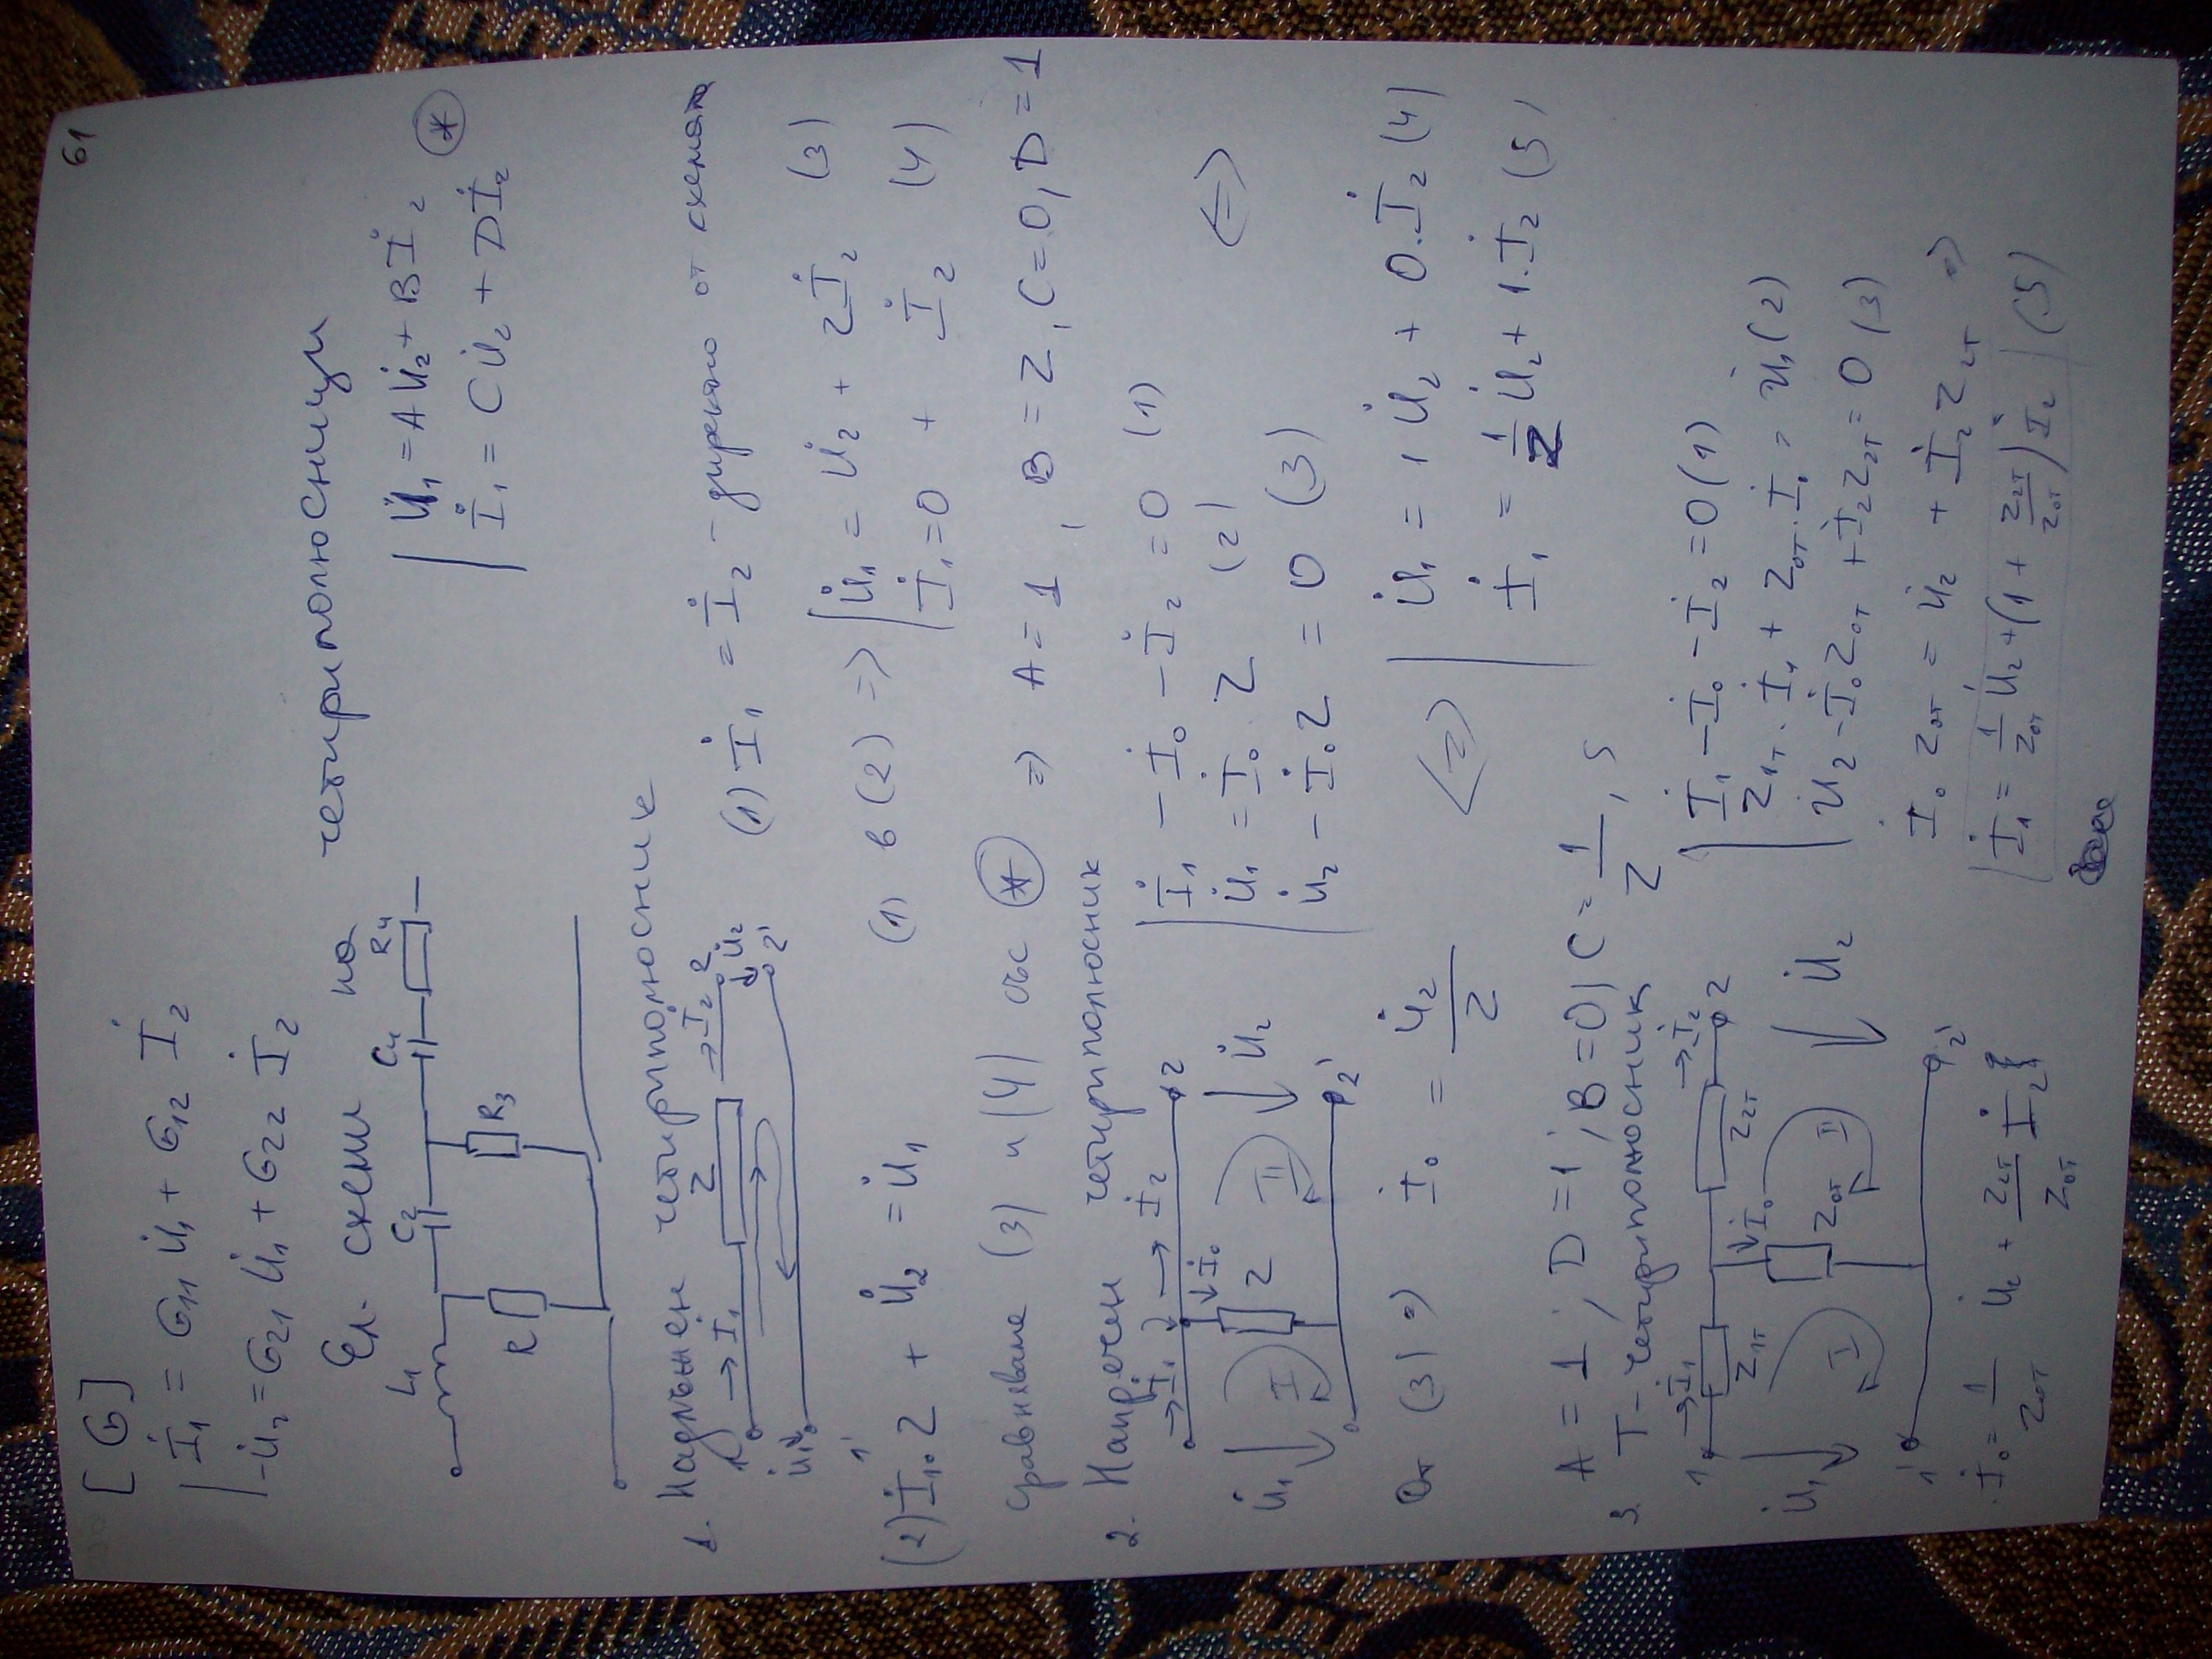 61
[G]
İ₁ = G₁₁ U̇₁ + G₁₂ İ₂
-U̇₂ = G₂₁ U̇₁ + G₂₂ İ₂
Ел. схеми на четириполюсници
L₁ C₂ C₄ R₄
R R₃
U̇₁ = A U̇₂ + B İ₂
İ₁ = C U̇₂ + D İ₂ (*)
1. Надлъжен четириполюсник
1 → İ₁ Z → İ₂ 2
U̇₁ U̇₂
1' 2'
(1) İ₁ = İ₂ - директно от схемата
(2) İ₁.Z + U̇₂ = U̇₁
(1) в (2) => U̇₁ = U̇₂ + Z İ₂ (3)
İ₁ = 0 + İ₂ (4)
Сравняваме (3) и (4) със (*) => A = 1, B = Z, C = 0, D = 1
2. Напречен четириполюсник
→ İ₁ → İ₂ 2
U̇₁ I İ₀ Z II U̇₂
2'
İ₁ - İ₀ - İ₂ = 0 (1)
U̇₁ = İ₀.Z (2)
U̇₂ - İ₀Z = 0 (3) <=>
От (3) => İ₀ = U̇₂/Z <=>
U̇₁ = 1 U̇₂ + 0.İ₂ (4)
İ₁ = 1/Z U̇₂ + 1.İ₂ (5)
A = 1, D = 1, B = 0, C = 1/Z, S
3. Т-четириполюсник
1 → İ₁ Z₁т İ₀ Z₂т → İ₂ 2
U̇₁ I Z₀т II U̇₂
1' 2'
İ₁ - İ₀ - İ₂ = 0 (1)
Z₁т.İ₁ + Z₀т.İ₀ = U̇₁ (2)
U̇₂ - İ₀Z₀т + İ₂Z₂т = 0 (3)
İ₀ Z₀т = U̇₂ + İ₂ Z₂т =>
İ₀ = 1/Z₀т U̇₂ + Z₂т/Z₀т İ₂}
İ₁ = 1/Z₀т U̇₂ + (1 + Z₂т/Z₀т) İ₂ (5)